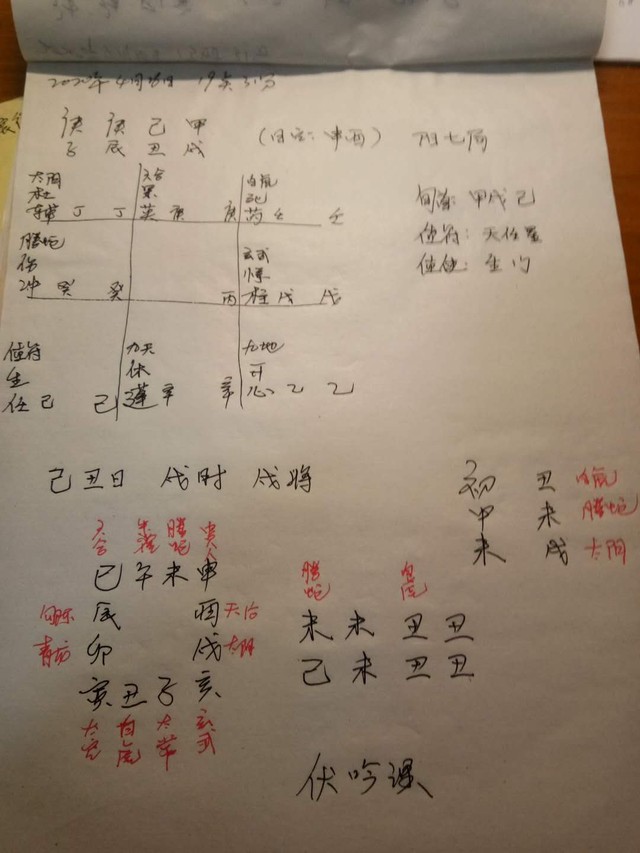 2020年4月18日 19点31分
庚 庚 己 甲
子 辰 丑 戌
(日空: 申酉) 阳七局
太阴 六合 白虎
杜 景 死
辅 丁 丁 英 庚 庚 芮 壬 壬
旬首: 甲戌己
值符: 天任星
值使: 生门
腾蛇 玄武
伤 惊
冲 癸 癸 丙 柱 戊 戊
值符 九天 九地
生 休 开
任 己 己 蓬 辛 辛 心 乙 乙
己丑日 戌时 戌将
初 丑 白虎
中 未 腾蛇
末 戌 太阴
六合 朱雀 腾蛇 贵人
巳 午 未 申
勾陈 辰 酉 天后
青龙 卯 戌 太阴
寅 丑 子 亥
天空 白虎 太常 玄武
腾蛇 白虎
未 未 丑 丑
己 未 丑 丑
伏吟课